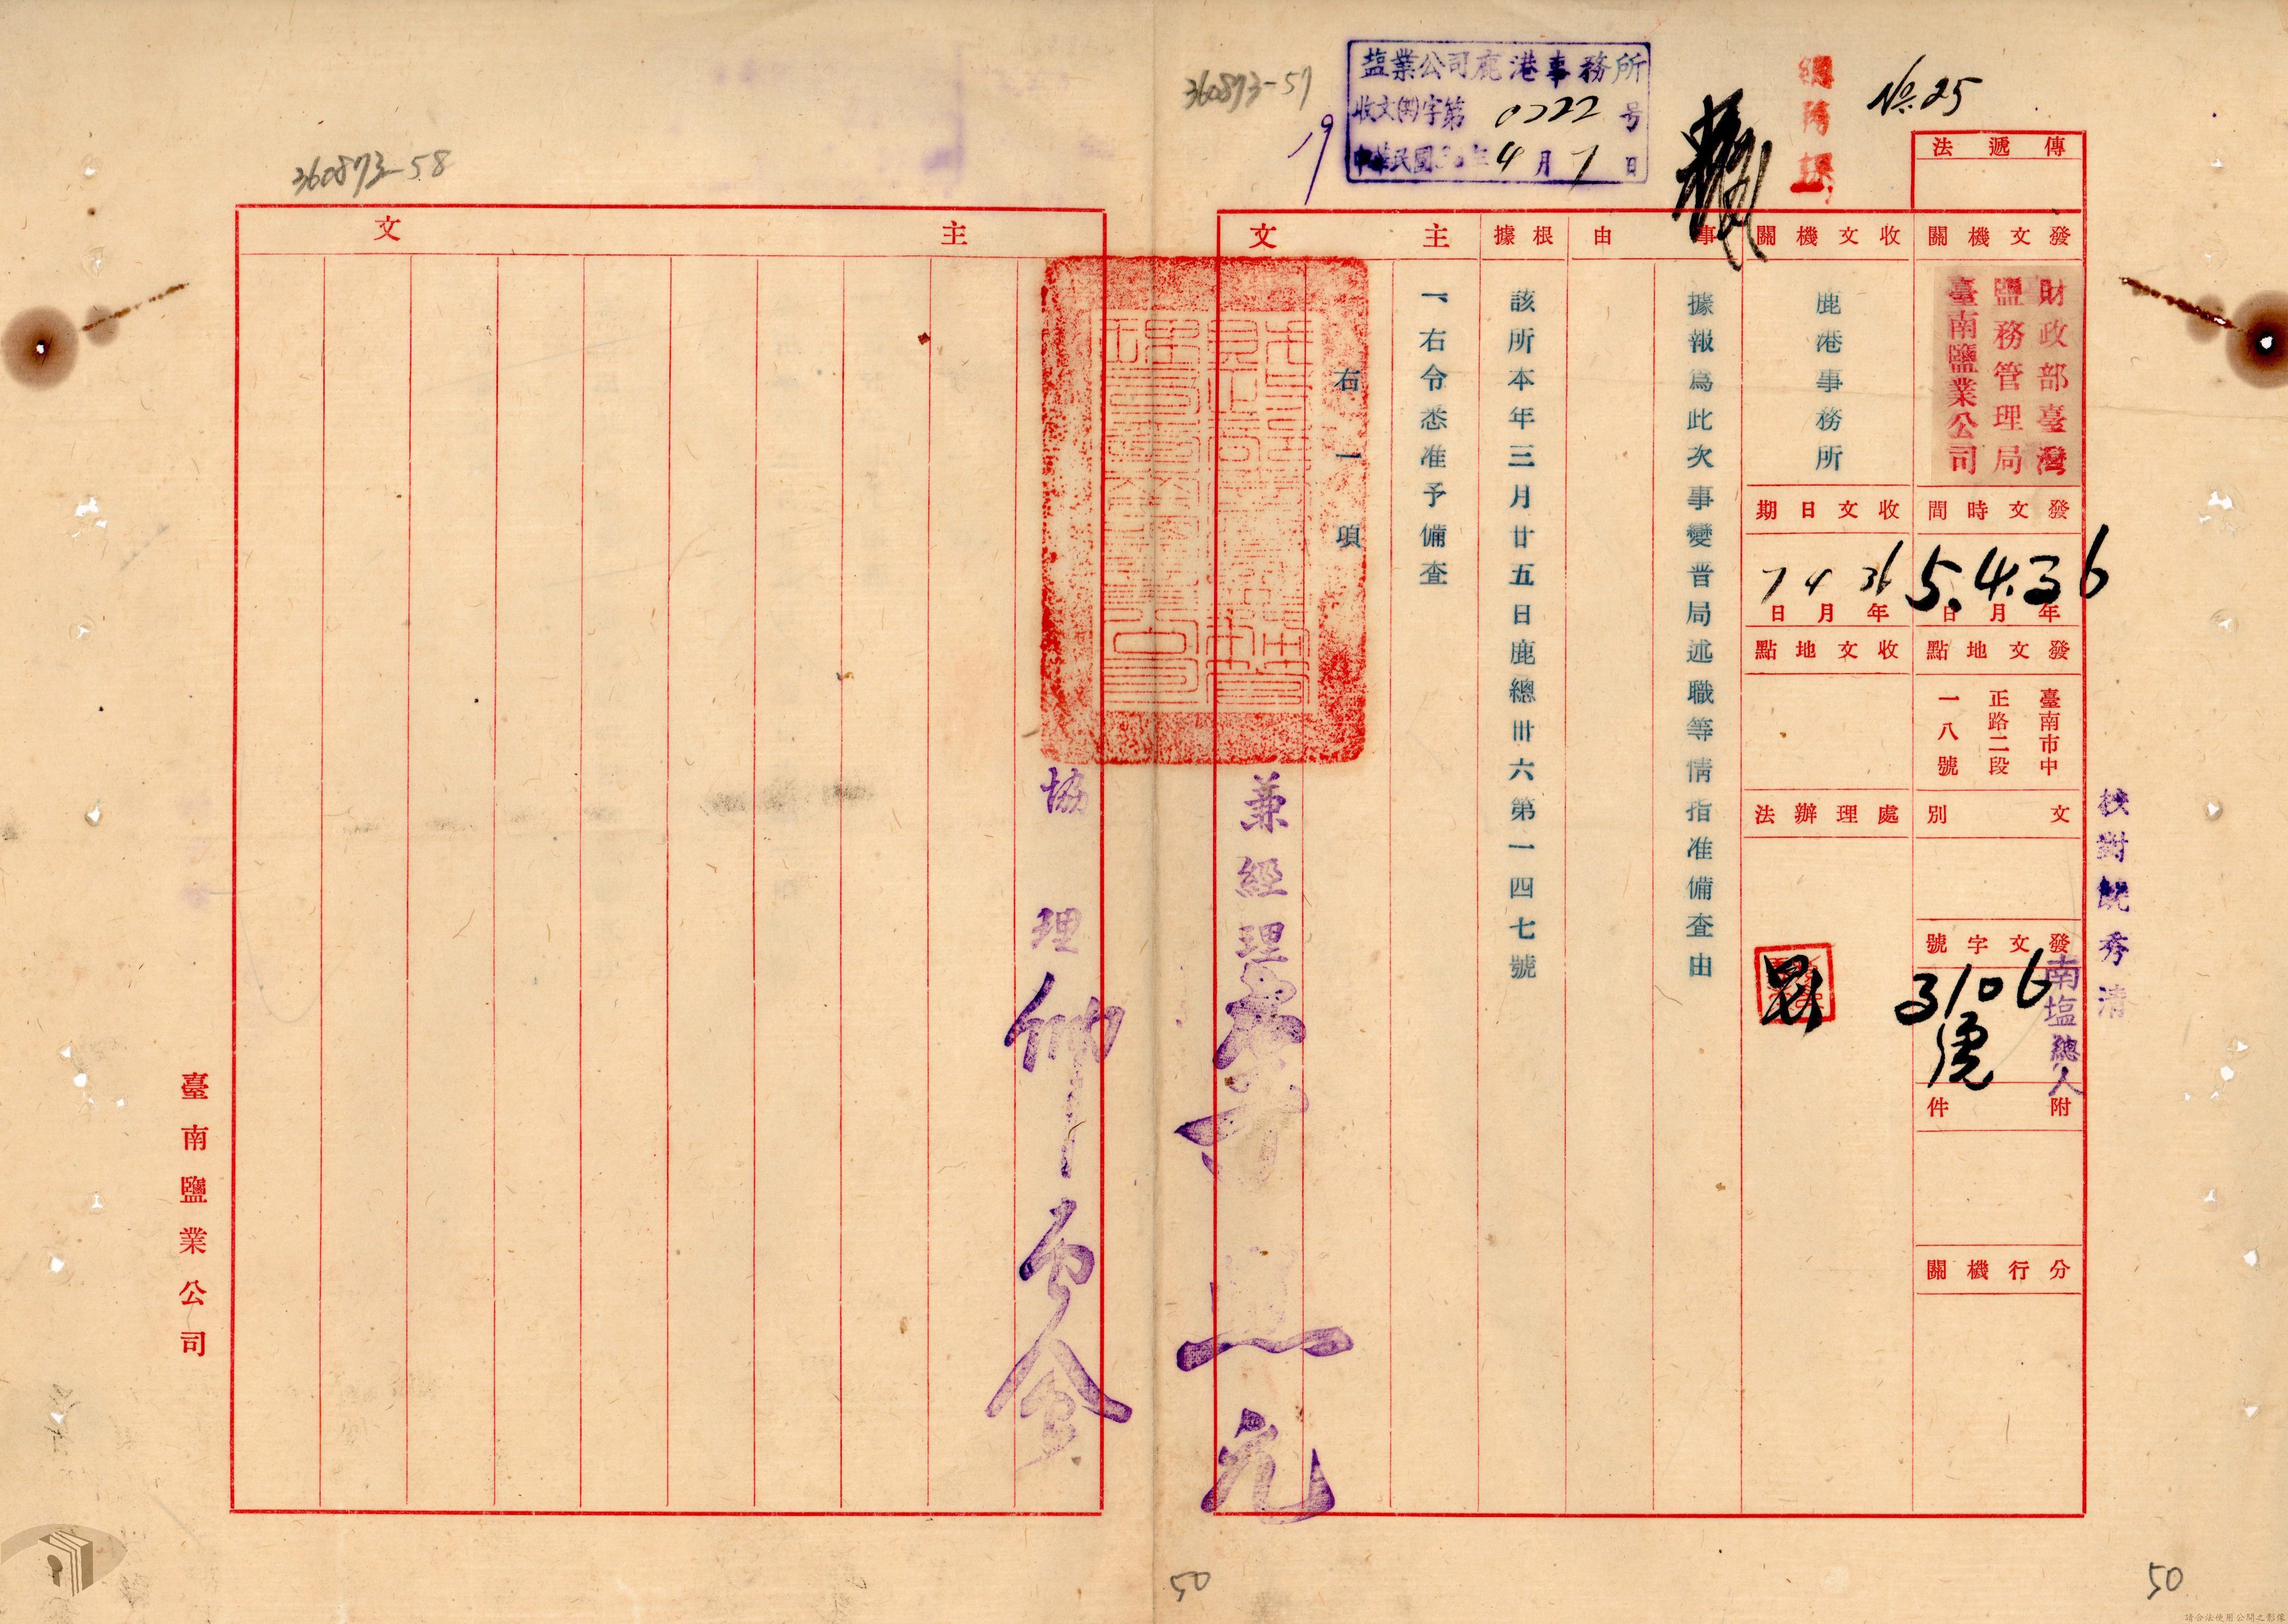 360873-57
360873-58
塩業公司鹿港事務所
收文(關)字第0222号
中華民國36年4月7日
19
No.25
總務課
傳遞法
發文機關
財政部臺灣
鹽務管理局
臺南鹽業公司
發文時間
36年4月5日
發文地點
臺南市中
正路二段
一八號
文別
發文字號
南塩總人
3106號
附件
分行機關
校對
秀清
收文機關
鹿港事務所
收文日期
36年4月7日
收文地點
處理辦法
事由
據報為此次事變晋局述職等情指准備查由
根據
該所本年三月廿五日鹿總卅六第一四七號
主文
一、右令悉准予備查
右一項
兼經理
協理
主文
臺南鹽業公司
50
50
請合法使用公開之影像